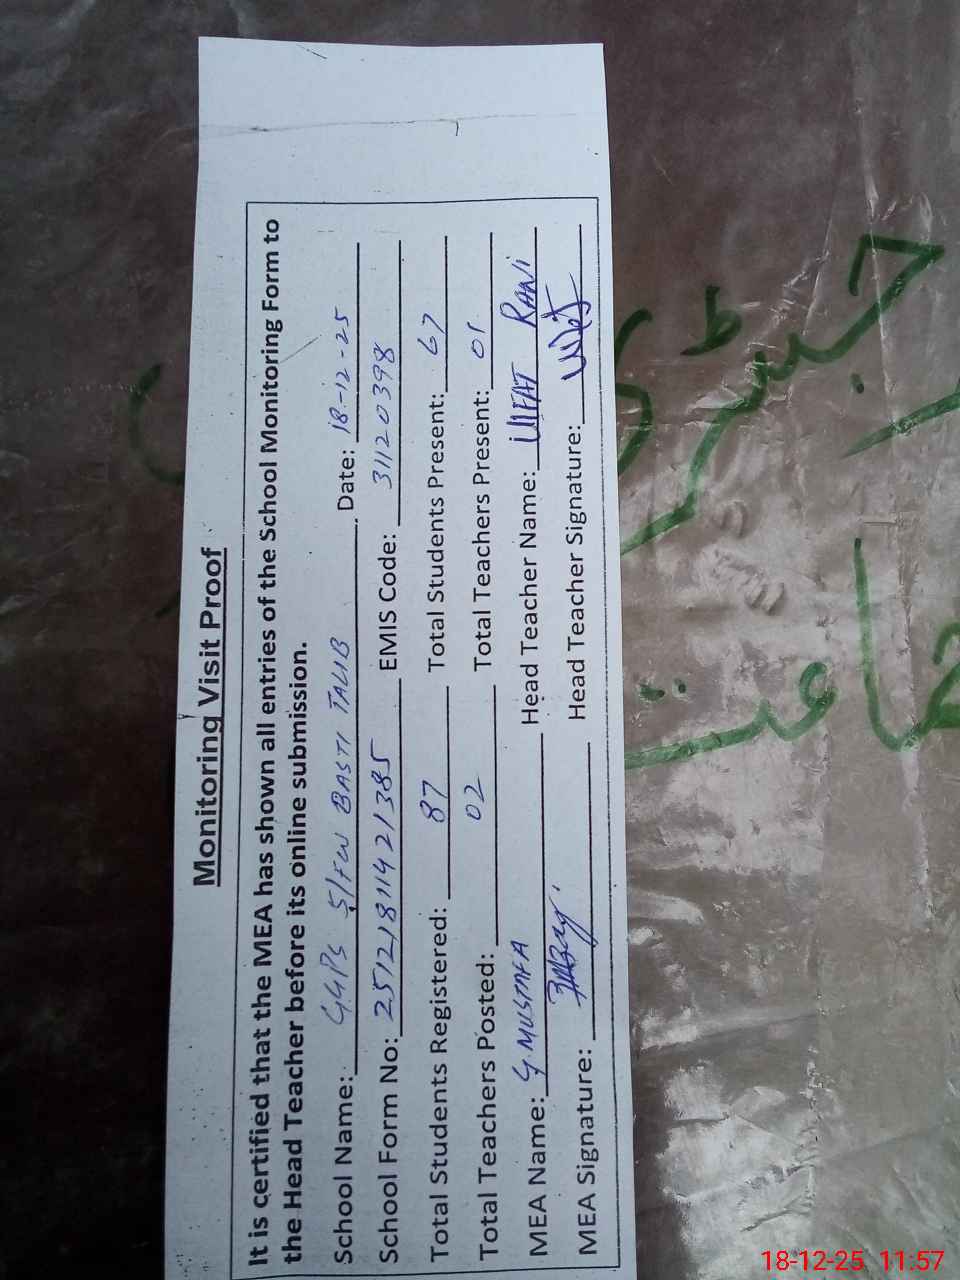 Monitoring Visit Proof
It is certified that the MEA has shown all entries of the School Monitoring Form to
the Head Teacher before its online submission.
School Name: GGPS S/FW BASTI TALIB Date: 18-12-25
School Form No: 25121811421385 EMIS Code: 31120398
Total Students Registered: 87 Total Students Present: 67
Total Teachers Posted: 02 Total Teachers Present: 01
MEA Name: G MUSTAFA Head Teacher Name: ULFAT RANI
MEA Signature: Head Teacher Signature:
جماعت
18-12-25 11:57